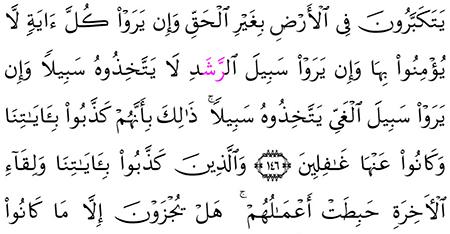 يَتَكَبَّرُونَ فِى ٱلْأَرْضِ بِغَيْرِ ٱلْحَقِّ وَإِن يَرَوْا۟ كُلَّ ءَايَةٍ لَّا
يُؤْمِنُوا۟ بِهَا وَإِن يَرَوْا۟ سَبِيلَ ٱلرَّشَدِ لَا يَتَّخِذُوهُ سَبِيلًا وَإِن
يَرَوْا۟ سَبِيلَ ٱلْغَىِّ يَتَّخِذُوهُ سَبِيلًا ۚ ذَٰلِكَ بِأَنَّهُمْ كَذَّبُوا۟ بِـَٔايَـٰتِنَا
وَكَانُوا۟ عَنْهَا غَـٰفِلِينَ ﴿١٤٦﴾ وَٱلَّذِينَ كَذَّبُوا۟ بِـَٔايَـٰتِنَا وَلِقَآءِ
ٱلْـَٔاخِرَةِ حَبِطَتْ أَعْمَـٰلُهُمْ ۚ هَلْ يُجْزَوْنَ إِلَّا مَا كَانُوا۟